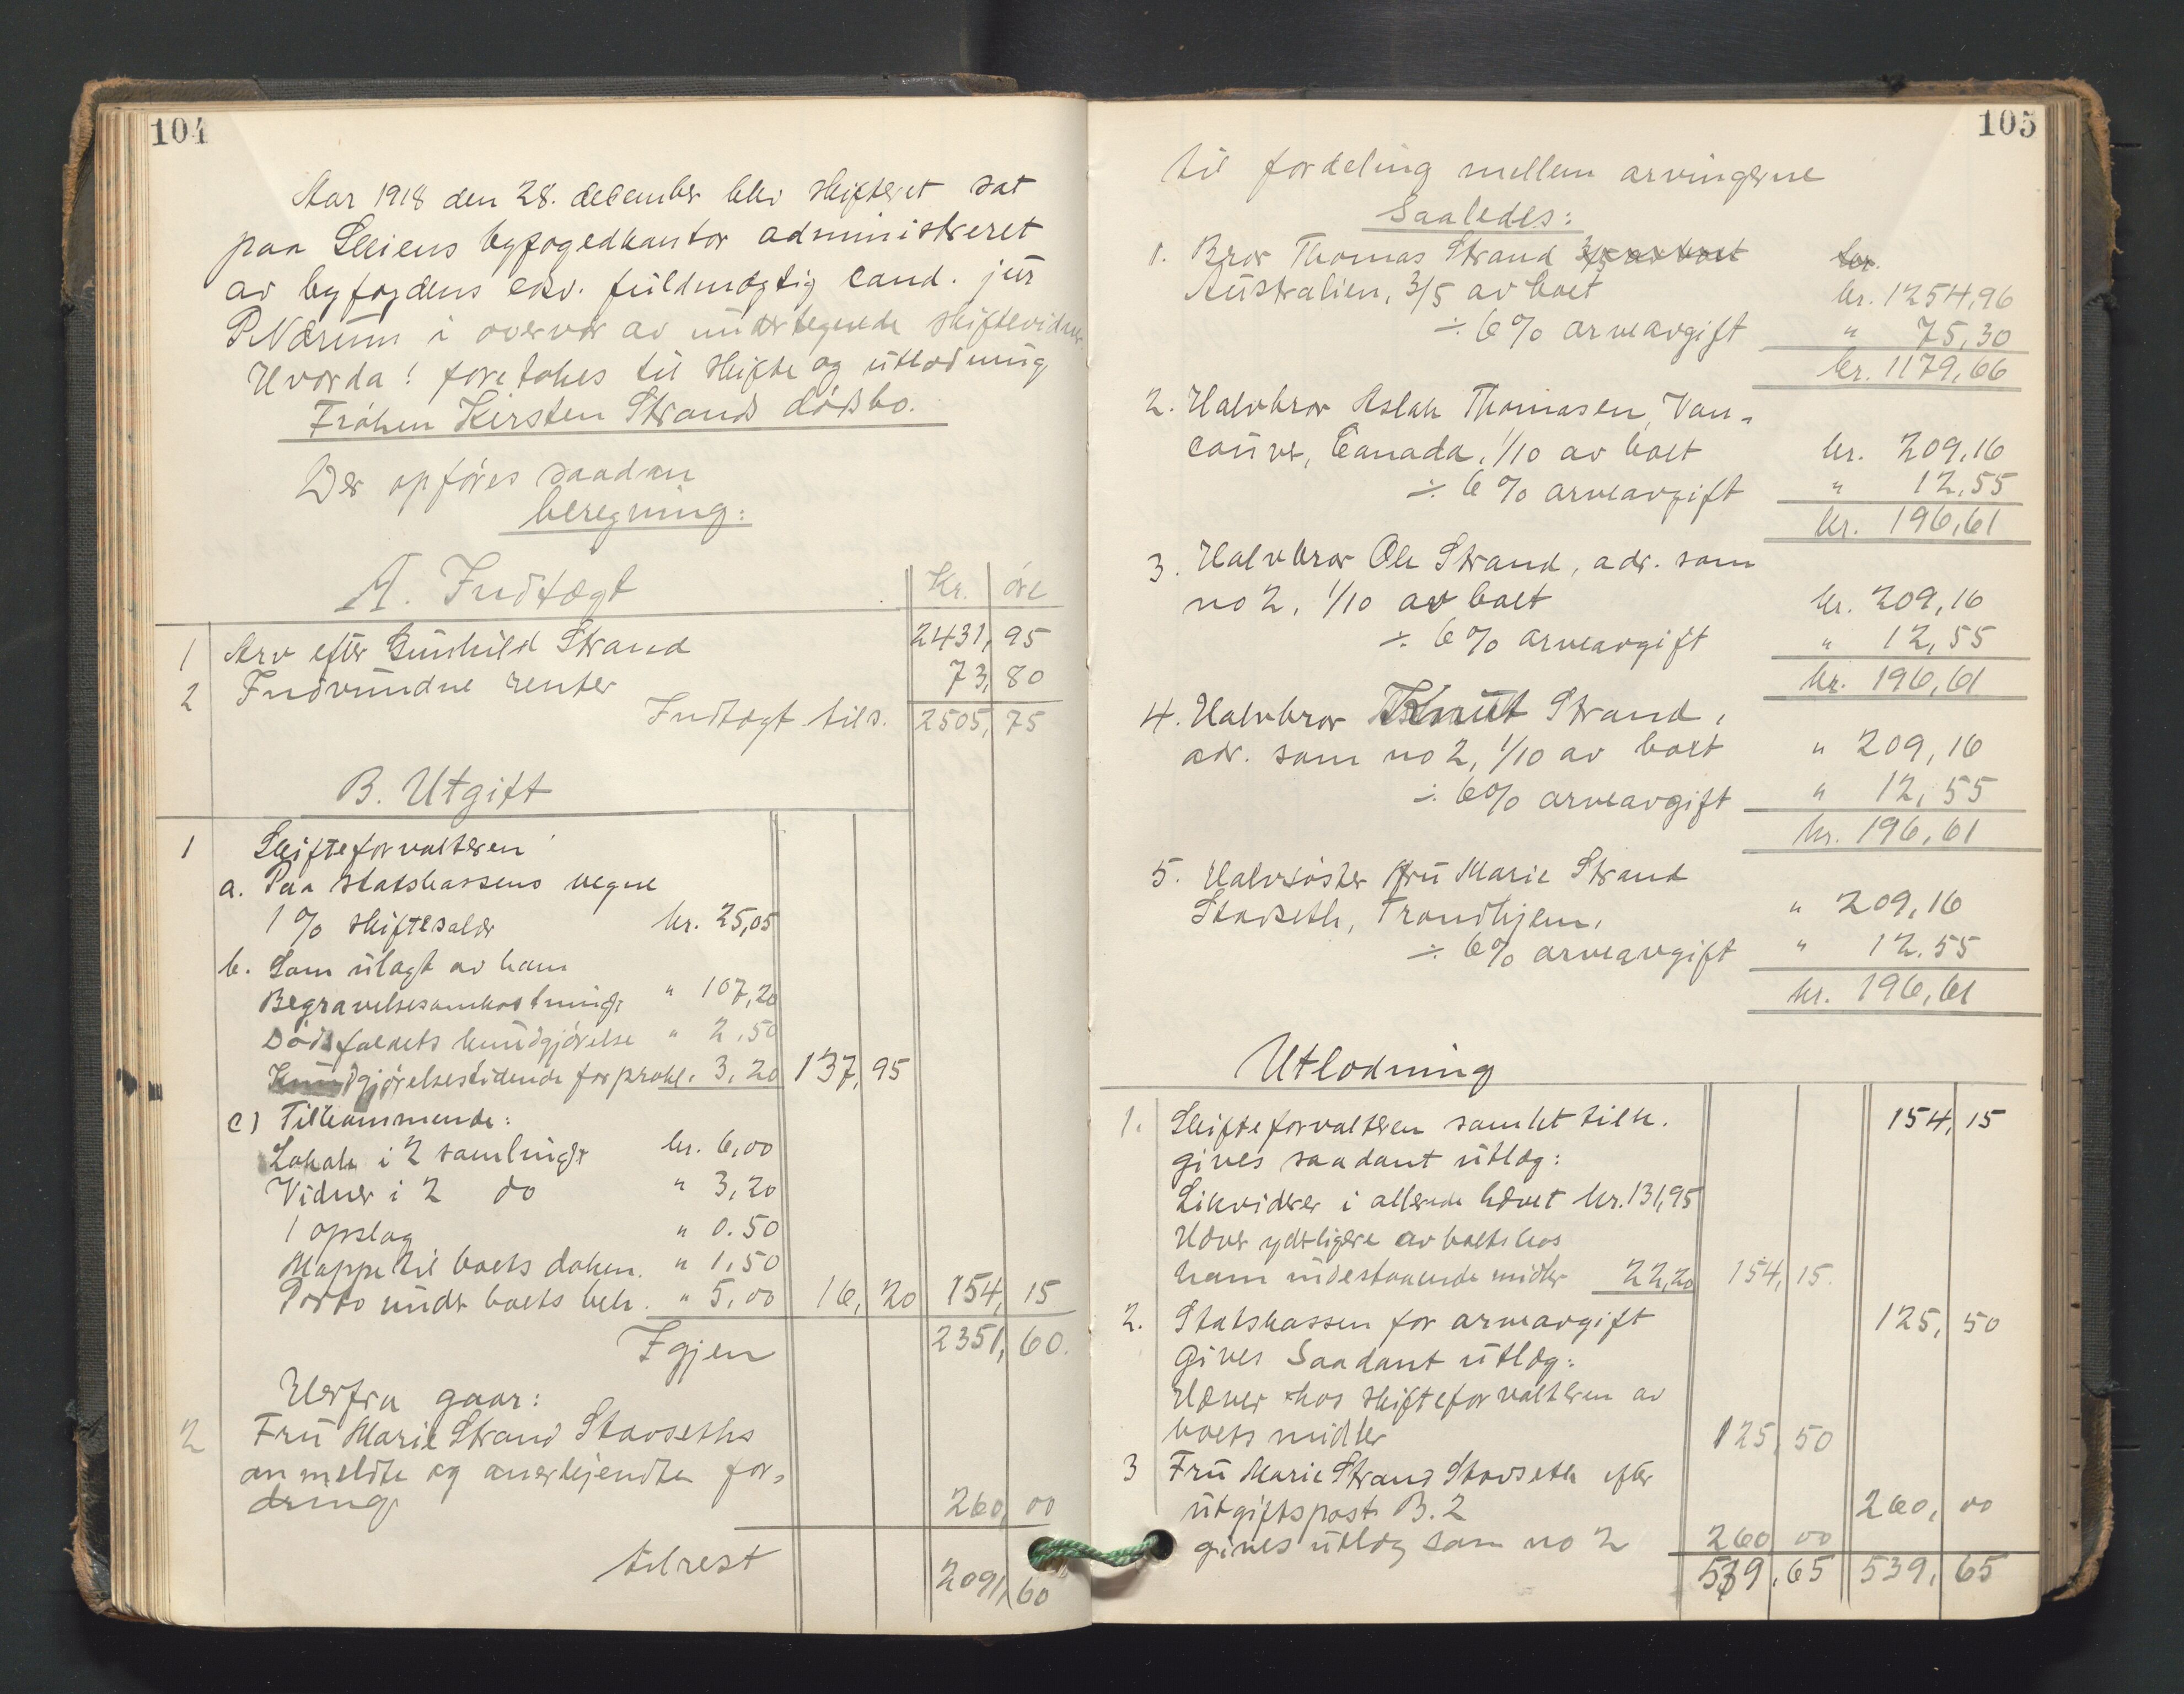 104
Aar 1918 den 28. december blev skifteret sat
paa Skiens byfogedkontor administreret
av byfogdens edsv. fuldmægtig cand. jur
P Nærum i overvær av undertegnede skiftevidner
Hvorda: foretokes til skifte og utlodning
Frøken Kirsten Strands dødsbo.
Der opføres saadan
beregning:
A. Indtægt Kr. øre
1 Arv efter Gunhild Strand 2431,95
2 Indvundne renter 73,80
Indtægt tils. 2505,75
B. Utgift
1 Skifteforvalteren
a. Paa statskassens vegne
1 % skiftesalær kr. 25,05
b. Som utlagt av ham
Begravelsesomkostninger " 107,20
Dødsfaldets kundgjørelse " 2,50
Kundgjørelsestidende for prokl. 3,20 137,95
c) Tilkommende:
Lokale i 2 samlinger kr. 6,00
Vidner i 2 do " 3,20
1 opslag " 0.50
Mappe til boets dokum. " 1,50
Porto under boets beh. " 5,00 16,20 154,15
Igjen 2351,60.
Herfra gaar:
2 Fru Marie Strand Stavseths
anmeldte og anerkjendte for-
dring 260,00
tilrest 2091,60
105
til fordeling mellem arvingerne
Saaledes:
1. Bror Thomas Strand 3/5 av boet kr.
Australien, 3/5 av boet kr. 1254,96
÷ 6 % arveavgift " 75,30
kr. 1179,66
2. Halvbror Aslak Thomasen, Van-
couver, Canada, 1/10 av boet kr. 209,16
÷ 6 % arveavgift " 12,55
kr. 196,61
3. Halvbror Ole Strand, adr. som
no 2, 1/10 av boet kr. 209,16
÷ 6 % arveavgift " 12,55
kr. 196,61
4. Halvbror Knut Strand,
adr. som no 2, 1/10 av boet " 209,16
÷ 6 % arveavgift " 12,55
kr. 196,61
5. Halvsøster fru Marie Strand
Stavseth, Trondhjem, " 209,16
÷ 6 % arveavgift " 12.55
kr. 196,61
Utlodning
1. Skifteforvalteren samlet tilk. 154,15
gives saadant utlæg:
Likviderer i allerede hævet kr. 131,95
Hæver yderligere av boets hos
ham indestaaende midler 22,20 154,15.
2. Statskassen for arveavgift 125,50
Gives Saadant utlæg:
Hæver hos skifteforvalteren av
boets midler 125,50
3 Fru Marie Strand Stavseth efter
utgiftspost B. 2 260,00
gives utlæg som no 2 260 00
539,65 539,65